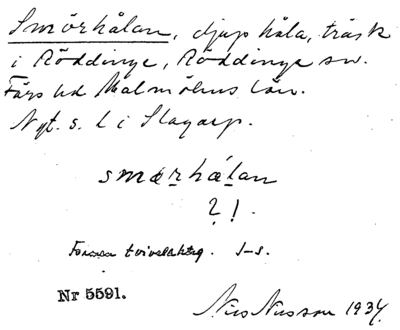 Smörhålan, djup håla, träsk
i Röddinge, Röddinge sn.
Färs hd Malmöhus län.
Nyt. s. l i Slagarp.
smœrhålan
? !.
Formen tvivelaktig. I-s.
Nr 5591.
Nils Nilsson 1934